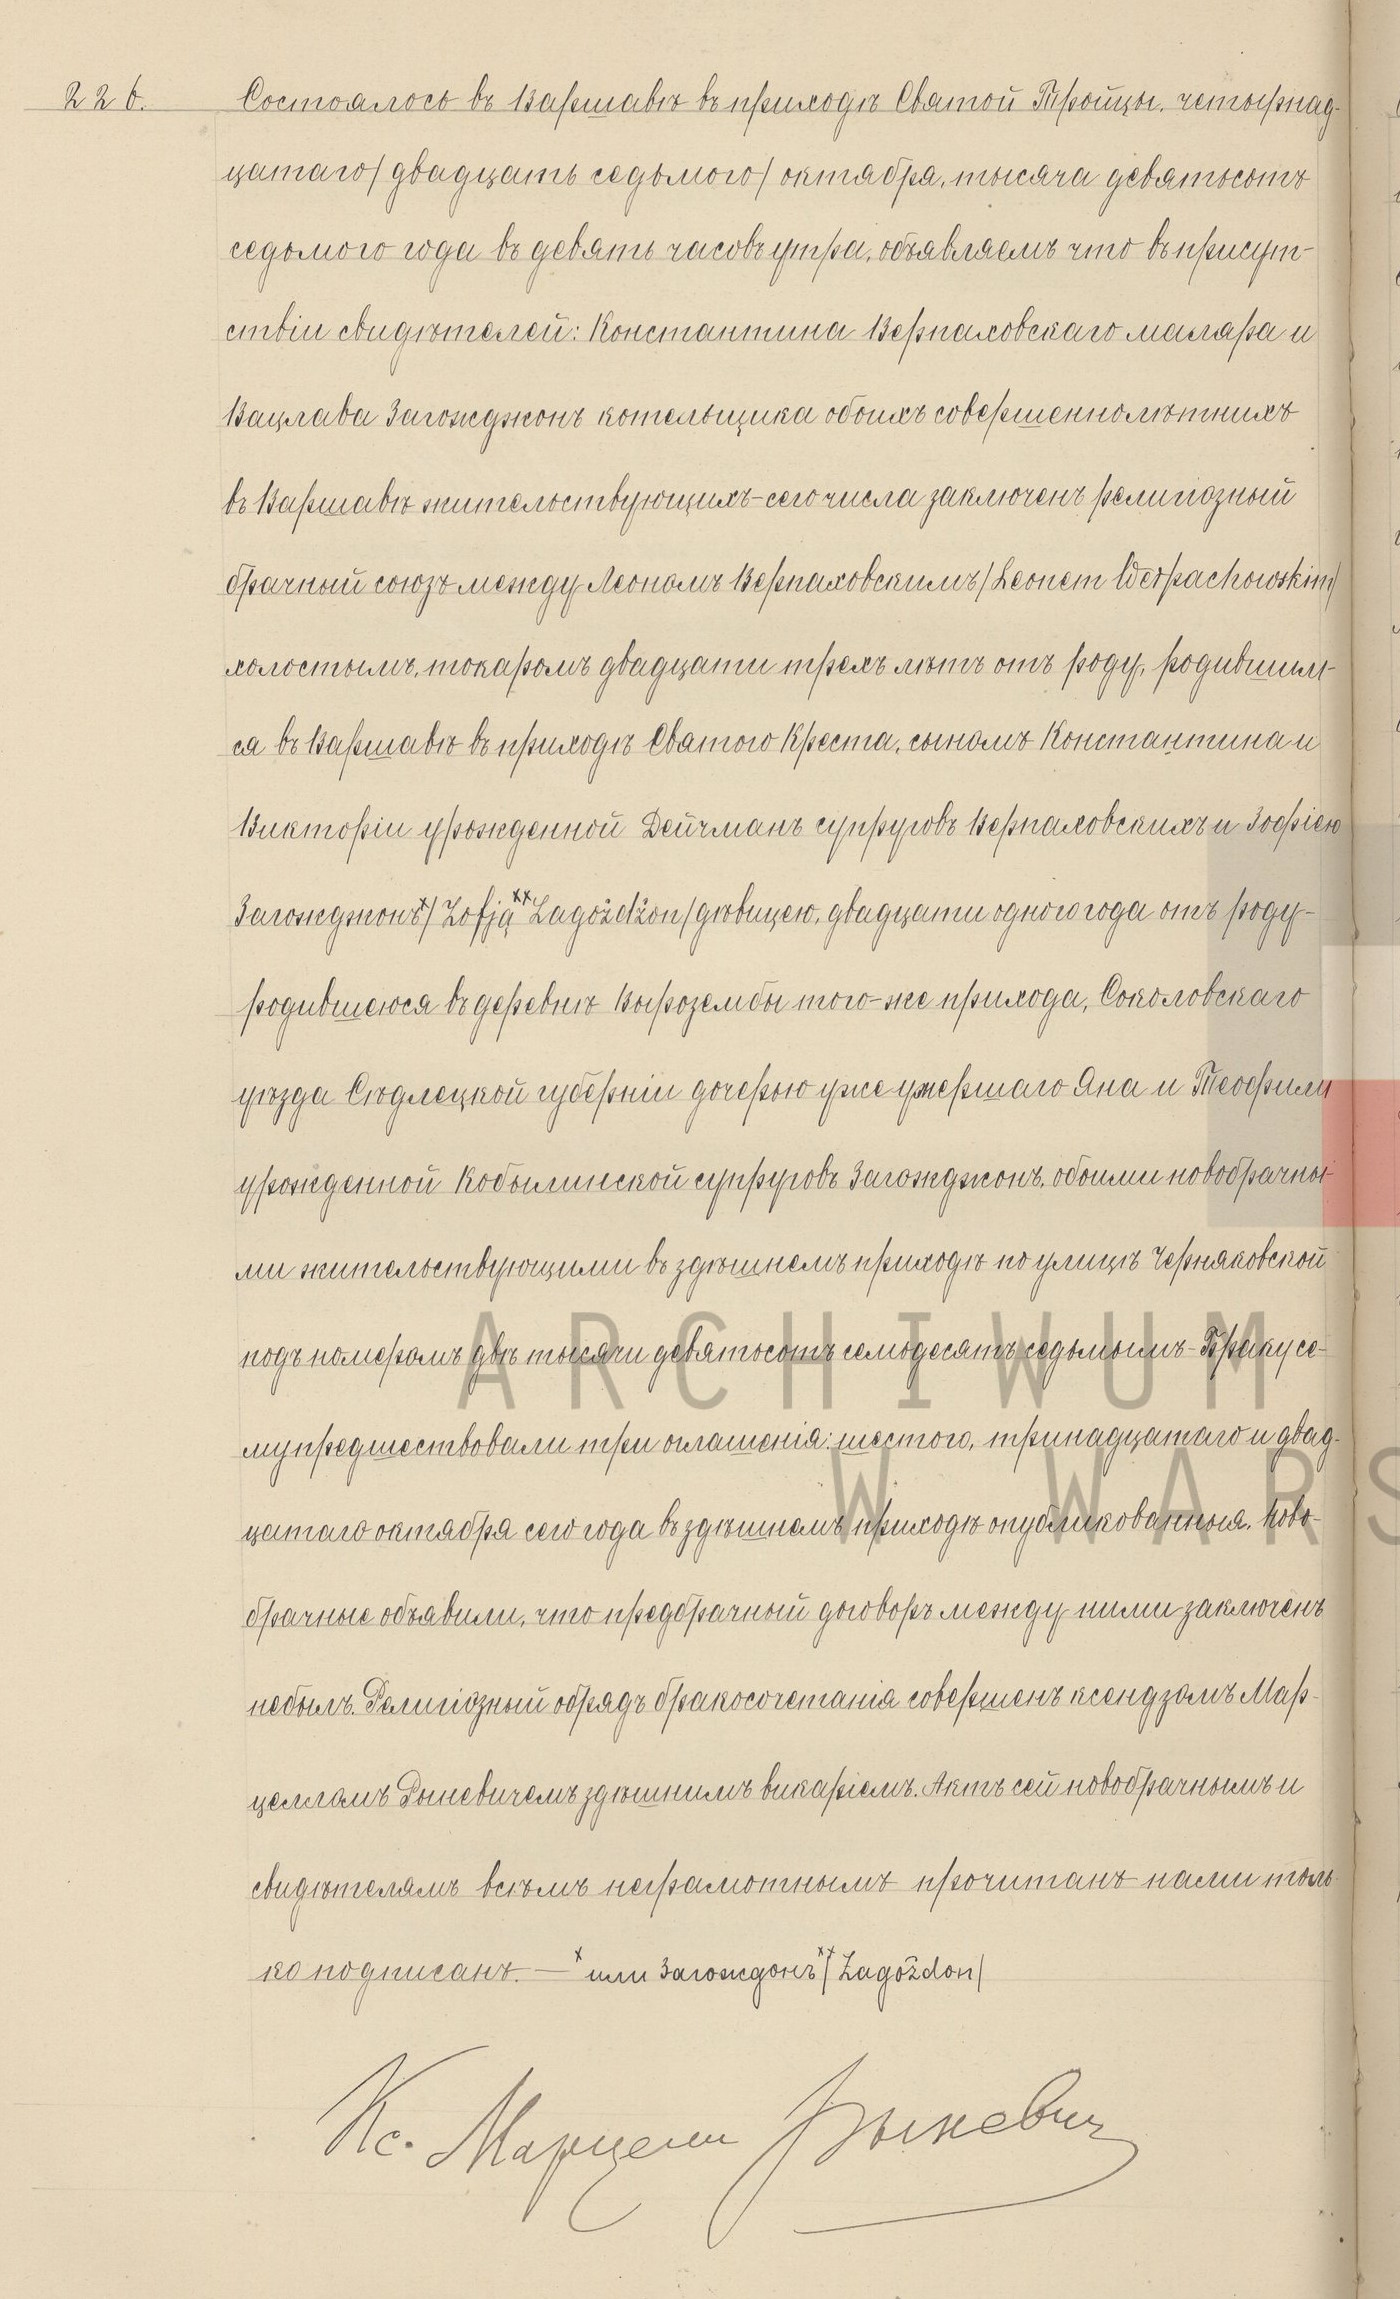 226. Состоялось въ Варшавѣ въ приходѣ Святой Тройцы, четырнад-
цатаго/двадцать седьмого/октября, тысяча девятьсотъ
седьмого года въ девять часовъ утра, объявляемъ что въ присут-
ствіи свидѣтелей: Константина Верпаховскаго маляра и
Вацлава Загожджонъ котельщика обоихъ совершеннолѣтнихъ
въ Варшавѣ жительствующихъ-сего числа заключенъ религіозный
брачный союзъ между Леономъ Верпаховскимъ/Leonem Werpachowskim/
холостымъ, токаромъ двадцати трехъ лѣтъ отъ роду, родившим-
ся въ Варшавѣ въ приходѣ Святого Креста, сыномъ Константина и
Викторіи урожденной Дейчманъ супруговъ Верпаховскихъ и Зофіею
Загожджонъˣ/Zofją ˣˣ Zagożdżon/дѣвицею, двадцати одного года отъ роду-
родившеюся въ деревнѣ Вырозембы того-же прихода, Соколовскаго
уѣзда Сѣдлецкой губерніи дочерью уже умершаго Яна и Теофили
урожденной Кобылинской супруговъ Загожджонъ, обоими новобрачны-
ми жительствующими въ здѣшнемъ приходѣ по улицѣ Черняковской
подъ номеромъ двѣ тысячи девятьсотъ семьдесятъ седьмымъ-Браку се-
му предшествовали три оглашенія: шестого, тринадцатаго и двад-
цатаго октября сего года въ здѣшнемъ приходѣ опубликованныя. Ново-
брачные объявили, что предбрачный договоръ между ними заключенъ
небылъ. Религіозный обрядъ бракосочетанія совершенъ ксендзомъ Мар-
целломъ Рыневичемъ здѣшнимъ викаріемъ. Актъ сей новобрачнымъ и
свидѣтелямъ всѣмъ неграмотнымъ прочитанъ нами толь-
ко подписанъ. — ˣ или Загождонъ ˣˣ/Zagożdon/
Кс. Марцели Рыневич
ARCHIWUM
W WARS